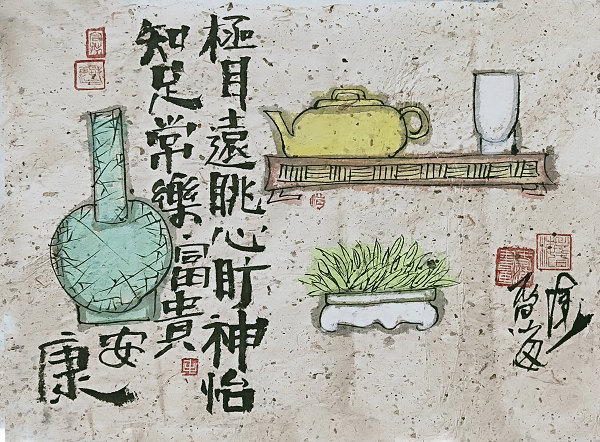 極目遠眺心旷神怡
知足常樂富貴
安
康